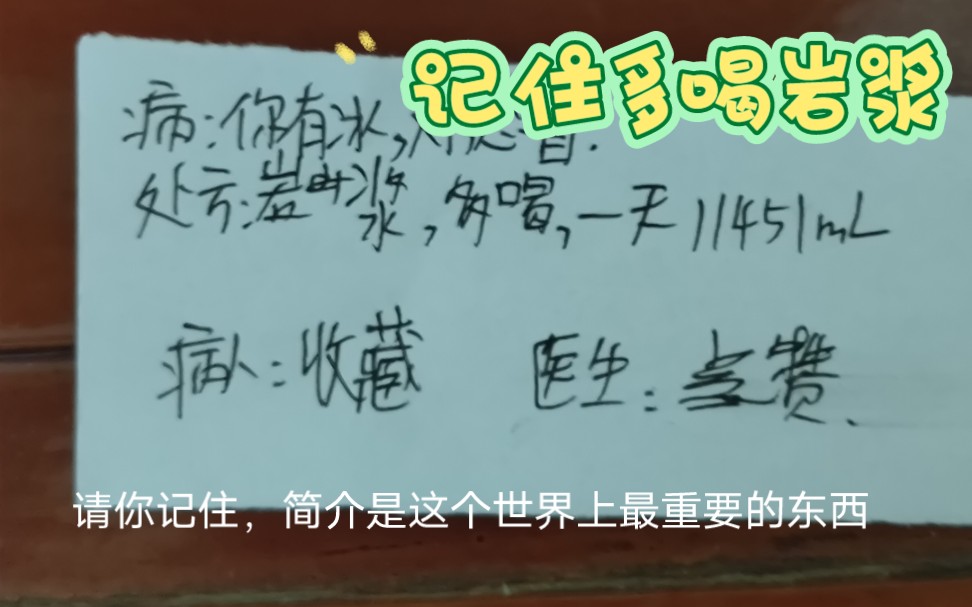 记住多喝岩浆
病:你有冰,
处方:岩浆,多喝,一天11451mL
病人:收藏 医生:点赞
请你记住,简介是这个世界上最重要的东西